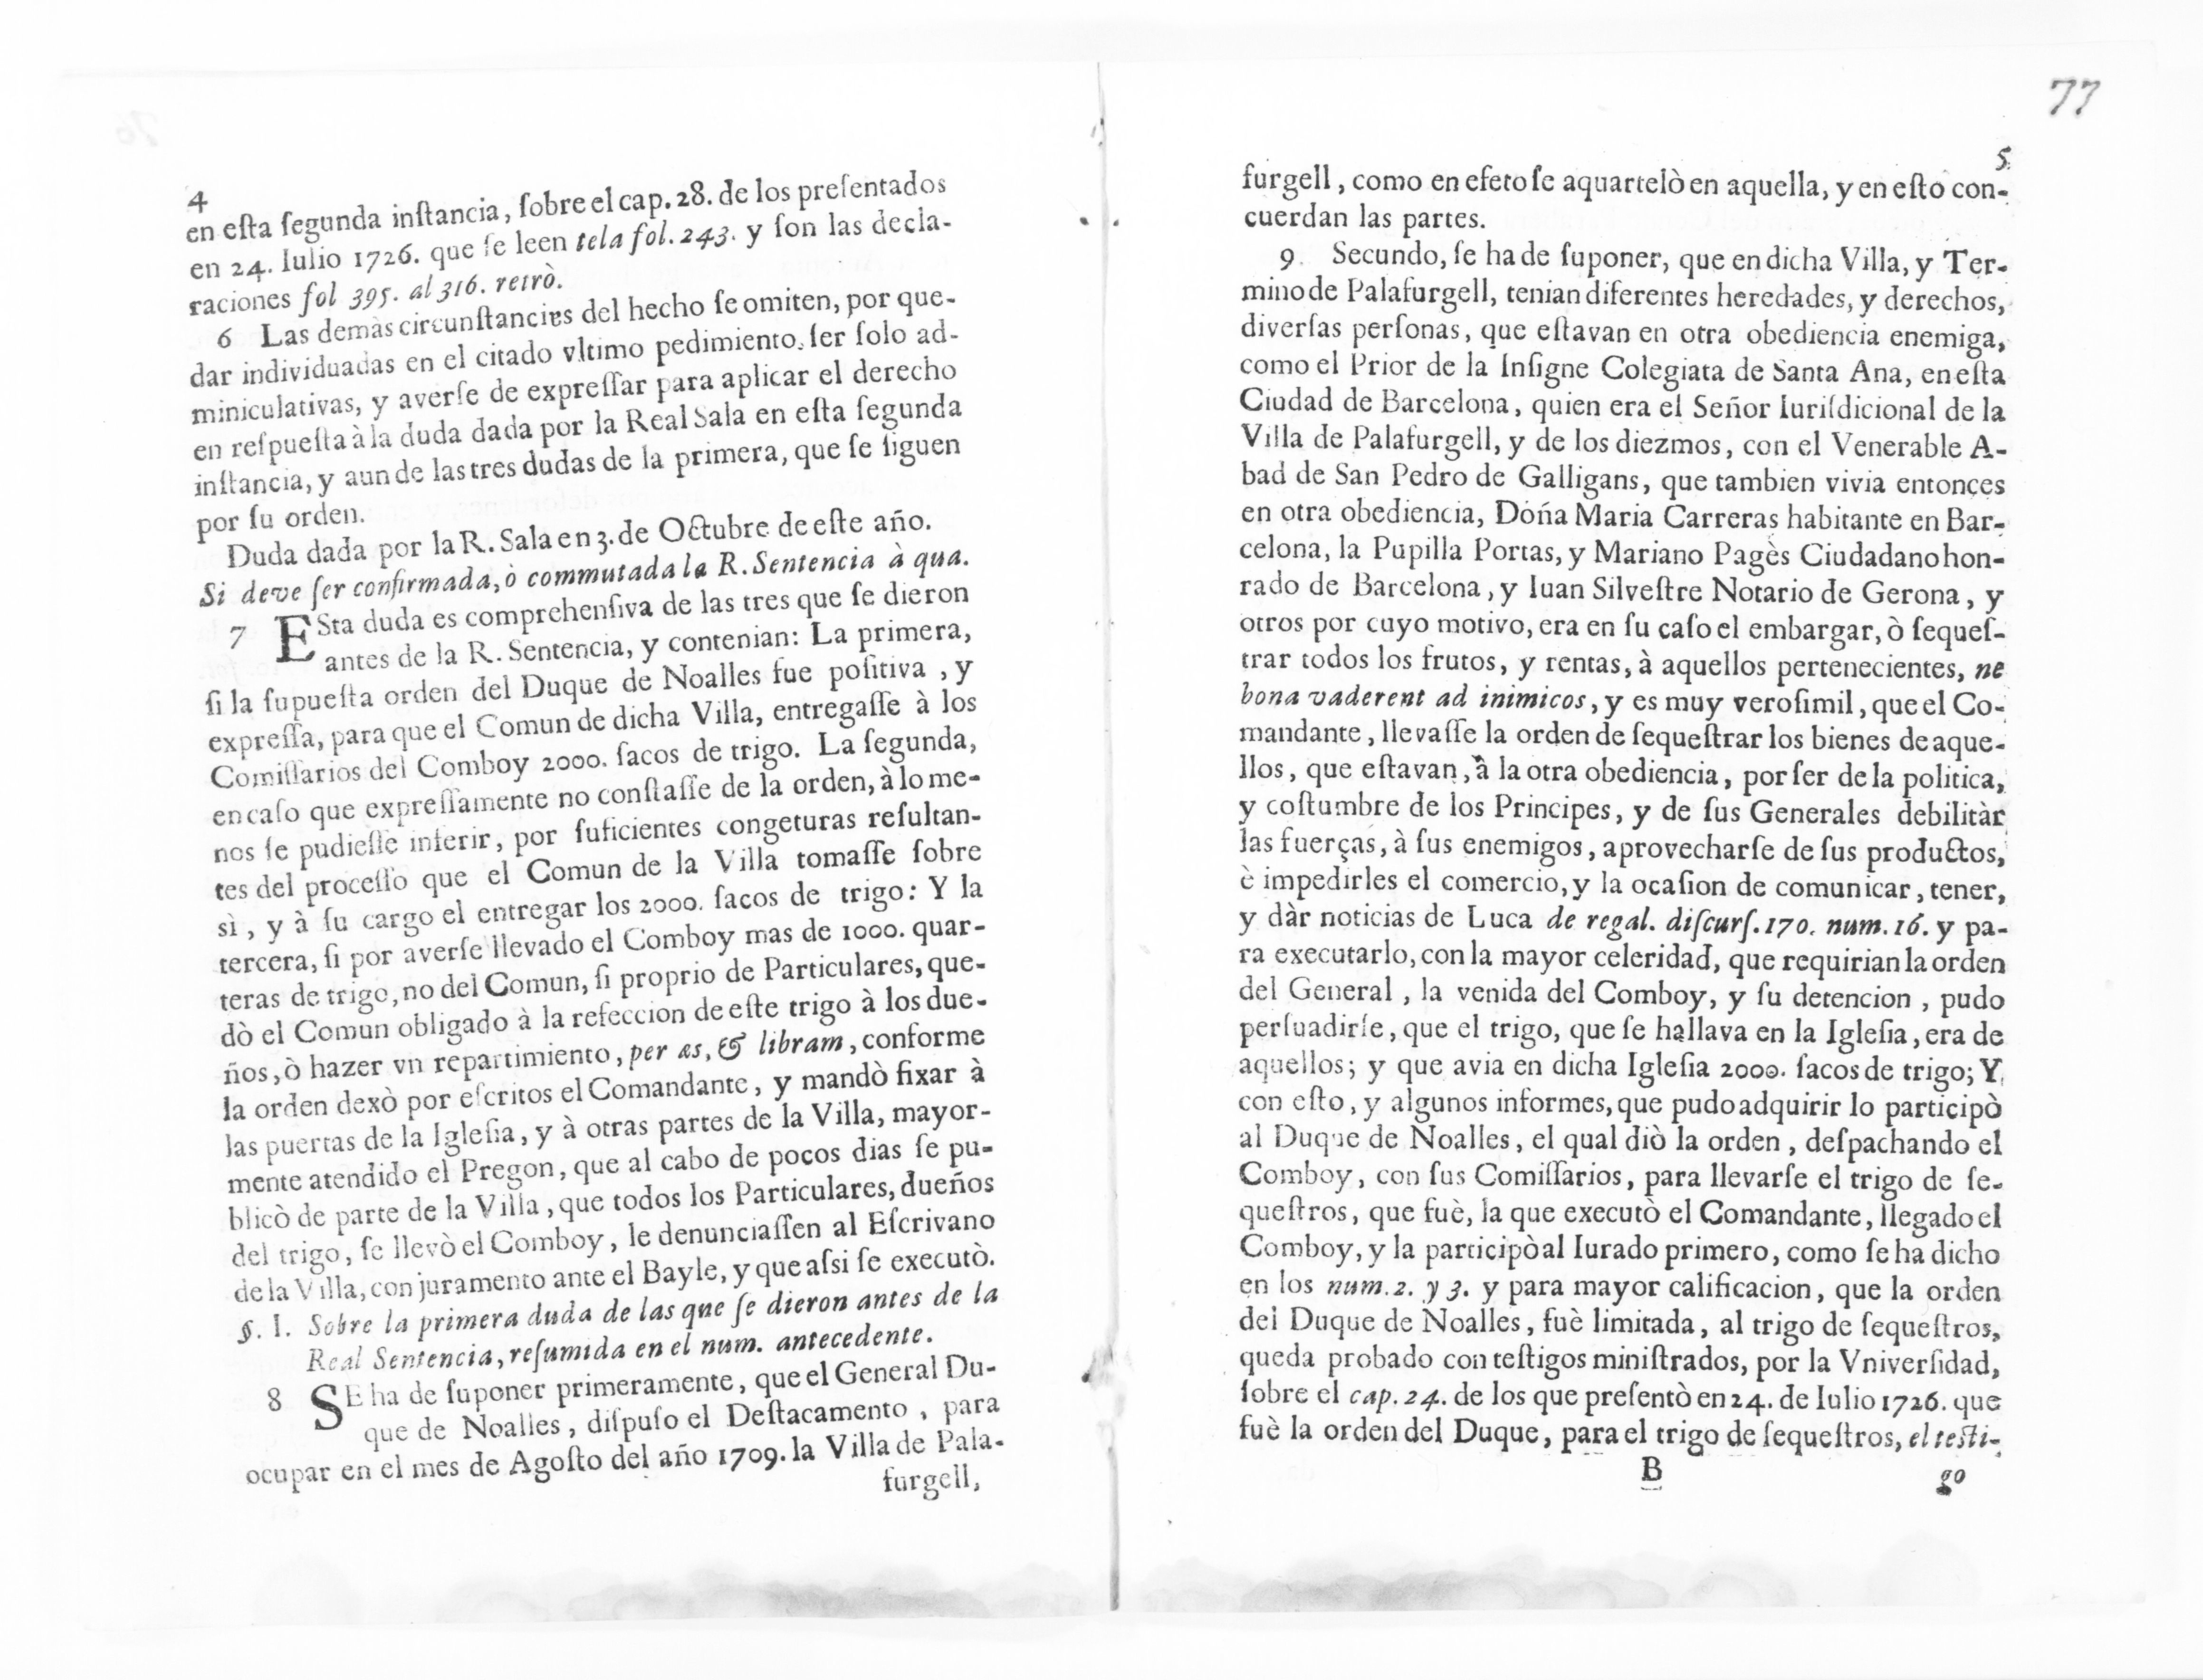 4
en eſta ſegunda inſtancia, ſobre el cap. 28. de los preſentados
en 24. Iulio 1726. que ſe leen tela fol. 243. y ſon las decla-
raciones fol 395. al 316. retrò.
6 Las demàs circunſtancies del hecho ſe omiten, por que-
dar individuadas en el citado vltimo pedimiento, ſer ſolo ad-
miniculativas, y averſe de expreſſar para aplicar el derecho
en reſpueſta à la duda dada por la Real Sala en eſta ſegunda
inſtancia, y aun de las tres dudas de la primera, que ſe ſiguen
por ſu orden.
Duda dada por la R. Sala en 3. de Octubre de eſte año.
Si deve ſer confirmada, ò commutada la R. Sentencia à qua.
7 ESta duda es comprehenſiva de las tres que ſe dieron
antes de la R. Sentencia, y contenian: La primera,
ſi la ſupueſta orden del Duque de Noalles fue poſitiva , y
expreſſa, para que el Comun de dicha Villa, entregaſſe à los
Comiſſarios del Comboy 2000. ſacos de trigo. La ſegunda,
en caſo que expreſſamente no conſtaſſe de la orden, à lo me-
nos ſe pudieſſe inferir, por ſuficientes congeturas reſultan-
tes del proceſſo que el Comun de la Villa tomaſſe ſobre
sì , y à ſu cargo el entregar los 2000. ſacos de trigo: Y la
tercera, ſi por averſe llevado el Comboy mas de 1000. quar-
teras de trigo, no del Comun, ſi proprio de Particulares, que-
dò el Comun obligado à la refeccion de eſte trigo à los due-
ños, ò hazer vn repartimiento, per æs, & libram, conforme
la orden dexò por eſcritos el Comandante, y mandò fixar à
las puertas de la Igleſia, y à otras partes de la Villa, mayor-
mente atendido el Pregon, que al cabo de pocos dias ſe pu-
blicò de parte de la Villa, que todos los Particulares, dueños
del trigo, ſe llevò el Comboy, le denunciaſſen al Eſcrivano
de la Villa, con juramento ante el Bayle, y que aſsi ſe executò.
§. I. Sobre la primera duda de las que ſe dieron antes de la
Real Sentencia, reſumida en el num. antecedente.
8 SE ha de ſuponer primeramente, que el General Du-
que de Noalles, diſpuſo el Deſtacamento , para
ocupar en el mes de Agoſto del año 1709. la Villa de Pala-
furgell,
77
5
furgell, como en efeto ſe aquartelò en aquella, y en eſto con-
cuerdan las partes.
9 Secundo, ſe ha de ſuponer, que en dicha Villa, y Ter-
mino de Palafurgell, tenian diferentes heredades, y derechos,
diverſas perſonas, que eſtavan en otra obediencia enemiga,
como el Prior de la Inſigne Colegiata de Santa Ana, en eſta
Ciudad de Barcelona, quien era el Señor Iuriſdicional de la
Villa de Palafurgell, y de los diezmos, con el Venerable A-
bad de San Pedro de Galligans, que tambien vivia entonces
en otra obediencia, Doña Maria Carreras habitante en Bar-
celona, la Pupilla Portas, y Mariano Pagès Ciudadano hon-
rado de Barcelona, y Iuan Silveſtre Notario de Gerona, y
otros por cuyo motivo, era en ſu caſo el embargar, ò ſequeſ-
trar todos los frutos, y rentas, à aquellos pertenecientes, ne
bona vaderent ad inimicos, y es muy veroſimil, que el Co-
mandante, llevaſſe la orden de ſequeſtrar los bienes de aque-
llos, que eſtavan, à la otra obediencia, por ſer de la politica,
y coſtumbre de los Principes, y de ſus Generales debilitàr
las fuerças, à ſus enemigos, aprovecharſe de ſus productos,
è impedirles el comercio, y la ocaſion de comunicar, tener,
y dàr noticias de Luca de regal. diſcurſ. 170. num. 16. y pa-
ra executarlo, con la mayor celeridad, que requirian la orden
del General , la venida del Comboy, y ſu detencion , pudo
perſuadirſe, que el trigo, que ſe hallava en la Igleſia, era de
aquellos; y que avia en dicha Igleſia 2000. ſacos de trigo; Y
con eſto, y algunos informes, que pudo adquirir lo participò
al Duque de Noalles, el qual diò la orden , deſpachando el
Comboy, con ſus Comiſſarios, para llevarſe el trigo de ſe-
queſtros, que fuè, la que executò el Comandante, llegado el
Comboy, y la participò al Iurado primero, como ſe ha dicho
en los num. 2. y 3. y para mayor calificacion, que la orden
del Duque de Noalles, fuè limitada, al trigo de ſequeſtros,
queda probado con teſtigos miniſtrados, por la Vniverſidad,
ſobre el cap. 24. de los que preſentò en 24. de Iulio 1726. que
fuè la orden del Duque, para el trigo de ſequeſtros, el teſti-
B
go